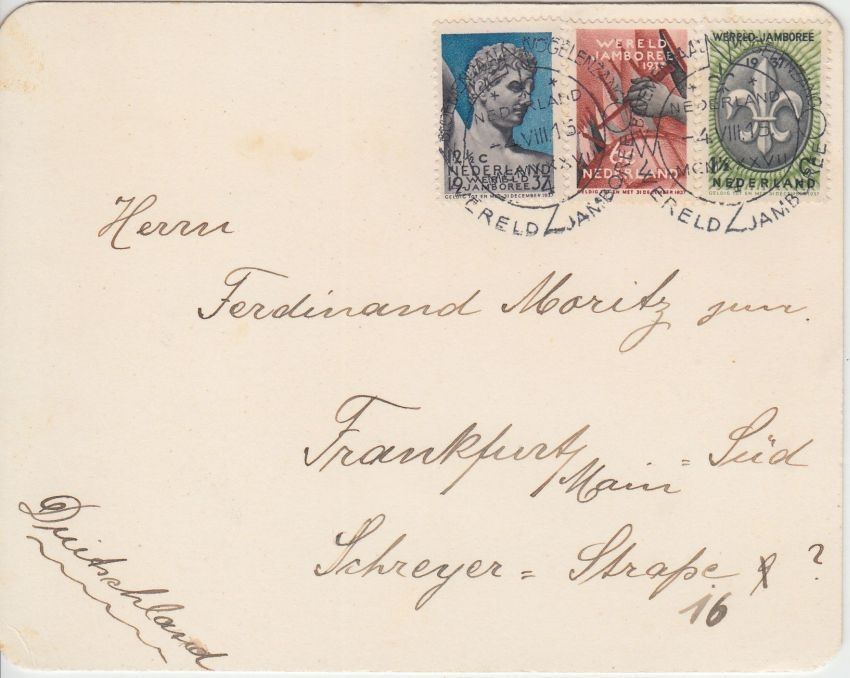 12½ C
NEDERLAND
WERELD
19 JAMBOREE 37
GELDIG TOT EN MET 31 DECEMBER 1937
WERELD
JAMBOREE
1937
NEDERLAND
GELDIG TOT EN MET 31 DECEMBER 1937
WERELD-JAMBOREE
19 37
NEDERLAND
GELDIG TOT EN MET 31 DECEMBER 1937
VOGELENZANG
NEDERLAND
-4.VIII.15
WERELD JAMBOREE
NEDERLAND
-4.VIII.15
MCMXXXVII
WERELD JAMBOREE
Herrn
Ferdinand Moritz jun.
Frankfurt/Main=Süd
Schreyer=Straße ?
16
Duitschland